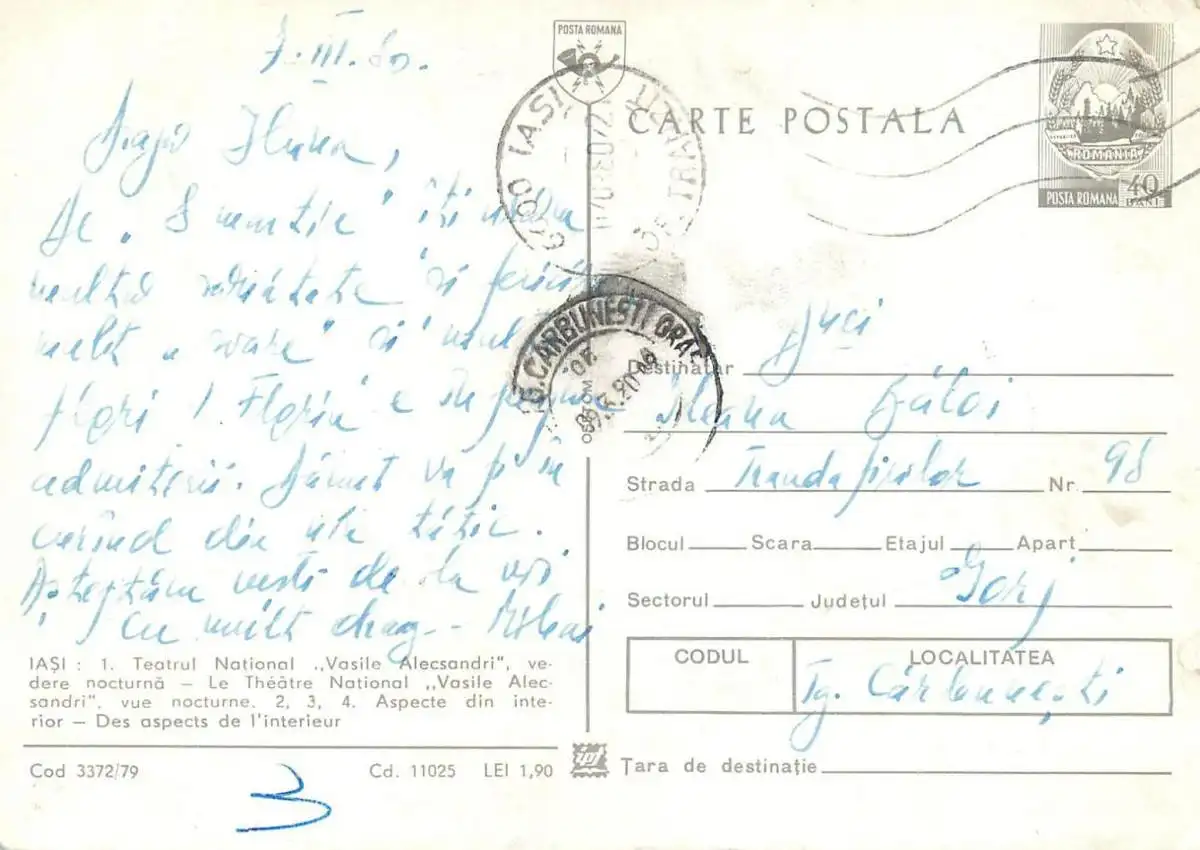 7.III.80.
Dragă Ileana,
De „8 martie" îți urăm
multă sănătate și fericire
mult „soare" și multe
flori! Florin e în preajma
admiterii. Sărut va fi în
curînd din ale tătic.
Așteptăm vesti de la voi
Cu mult drag
IAȘI : 1. Teatrul Național „Vasile Alecsandri", ve-
dere nocturnă – Le Théâtre National „Vasile Alec-
sandri", vue nocturne. 2, 3, 4. Aspecte din inte-
rior – Des aspects de l'interieur
Cod 3372/79 Cd. 11025 LEI 1,90
3
POSTA ROMANA
CARTE POSTALA
ROMANIA
POSTA ROMANA 40 BANI
IASI
TG. CARBUNESTI ORAS
Destinatar
Ileana Băloi
Strada Trandafirilor Nr. 98
Blocul Scara Etajul Apart.
Sectorul Județul Gorj
CODUL LOCALITATEA
Tg. Cărbunești
Țara de destinație